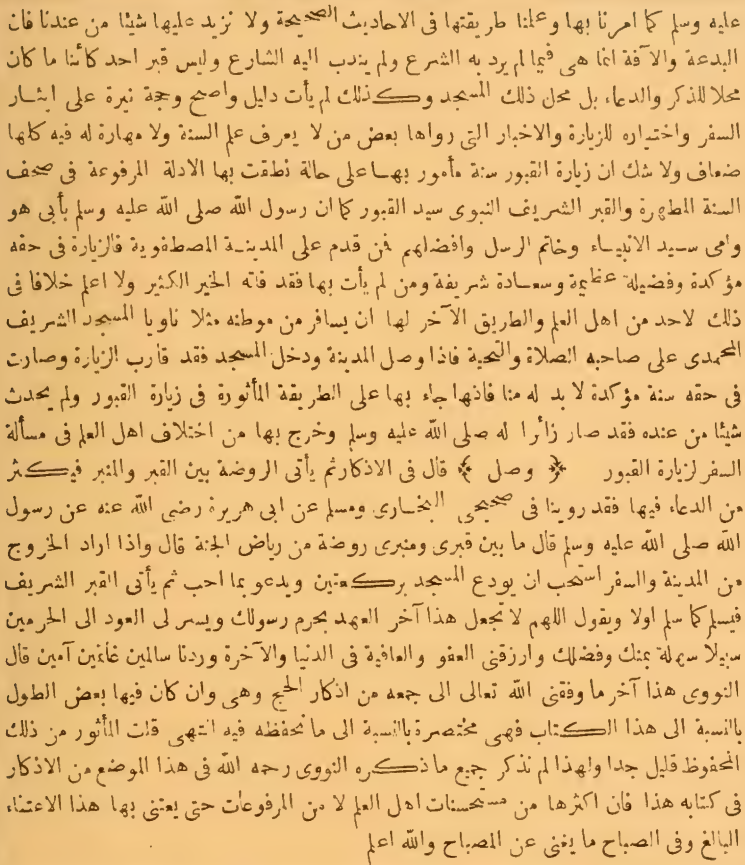 عليه وسلم كما امرنا بها وعلمنا طريقتها فى الاحاديث الصحيحة ولا نزيد عليها شيئا من عندنا فان
البدعة والآفة انما هى فيما لم يرد به الشرع ولم يندب اليه الشارع وليس قبر احد كائنا ما كان
محلا للذكر والدعاء بل محل ذلك المسجد وكذلك لم يأت دليل واضح وحجة نيرة على ايثار
السفر واختياره للزيارة والاخبار التى رواها بعض من لا يعرف علم السنة ولا مهارة له فيه كلها
ضعاف ولا شك ان زيارة القبور سنة مأمور بها على حالة نطقت بها الادلة المرفوعة فى صحف
السنة المطهرة والقبر الشريف النبوى سيد القبور كما ان رسول الله صلى الله عليه وسلم بأبى هو
وامى سيد الانبياء وخاتم الرسل وافضلهم فمن قدم على المدينة المصطفوية فالزيارة فى حقه
مؤكدة وفضيلة عظيمة وسعادة شريفة ومن لم يأت بها فقد فاته الخير الكثير ولا اعلم خلافا فى
ذلك لاحد من اهل العلم والطريق الآخر لها ان يسافر من موطنه مثلا ناويا المسجد الشريف
المحمدى على صاحبه الصلاة والتحية فاذا وصل المدينة ودخل المسجد فقد قارب الزيارة وصارت
فى حقه سنة مؤكدة لا بد له منا فانها جاء بها على الطريقة المأثورة فى زيارة القبور ولم يحدث
شيئا من عنده فقد صار زائرا له صلى الله عليه وسلم وخرج بها من اختلاف اهل العلم فى مسألة
السفر لزيارة القبور ﴿ وصل ﴾ قال فى الاذكار ثم يأتى الروضة بين القبر والمنبر فيكثر
من الدعاء فيها فقد روينا فى صحيحى البخارى ومسلم عن ابى هريرة رضى الله عنه عن رسول
الله صلى الله عليه وسلم قال ما بين قبرى ومنبرى روضة من رياض الجنة قال واذا اراد الخروج
من المدينة والسفر استحب ان يودع المسجد بركعتين ويدعو بما احب ثم يأتى القبر الشريف
فيسلم كما سلم اولا ويقول اللهم لا تجعل هذا آخر العهد بحرم رسولك ويسر لى العود الى الحرمين
سبيلا سهلة بمنك وفضلك وارزقنى العفو والعافية فى الدنيا والآخرة وردنا سالمين غانمين آمين قال
النووى هذا آخر ما وفقنى الله تعالى الى جمعه من اذكار الحج وهى وان كان فيها بعض الطول
بالنسبة الى هذا الكتاب فهى مختصرة بالنسبة الى ما نحفظه فيه انتهى قلت المأثور من ذلك
المحفوظ قليل جدا ولهذا لم نذكر جميع ما ذكره النووى رحمه الله فى هذا الموضع من الاذكار
فى كتابه هذا فان اكثرها من مستحسنات اهل العلم لا من المرفوعات حتى يعتنى بها هذا الاعتناء
البالغ وفى الصباح ما يغنى عن المصباح والله اعلم